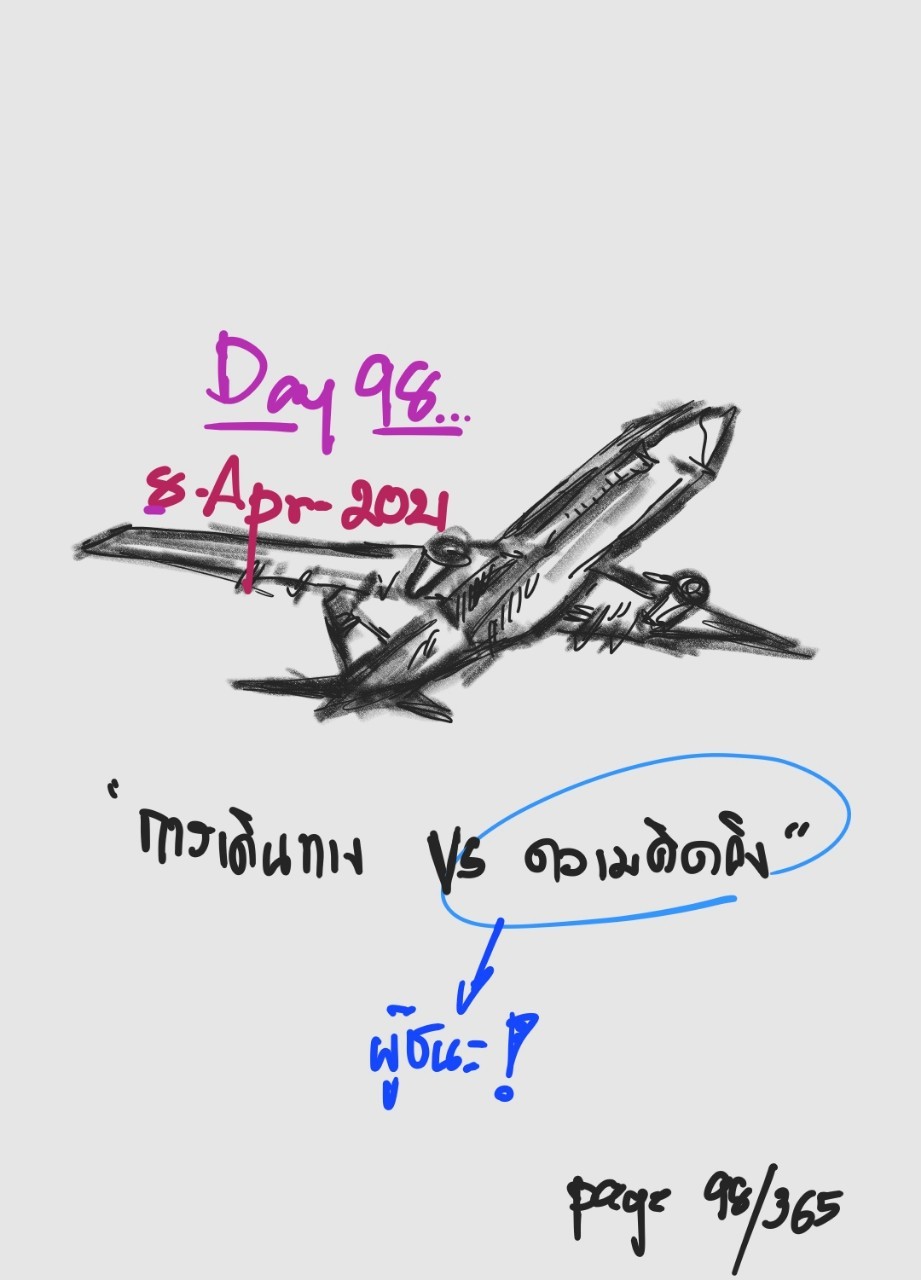 Day 98...
8-Apr-2021
"การเดินทาง Vs ความคิดถึง"
ผู้ชนะ!
page 98/365